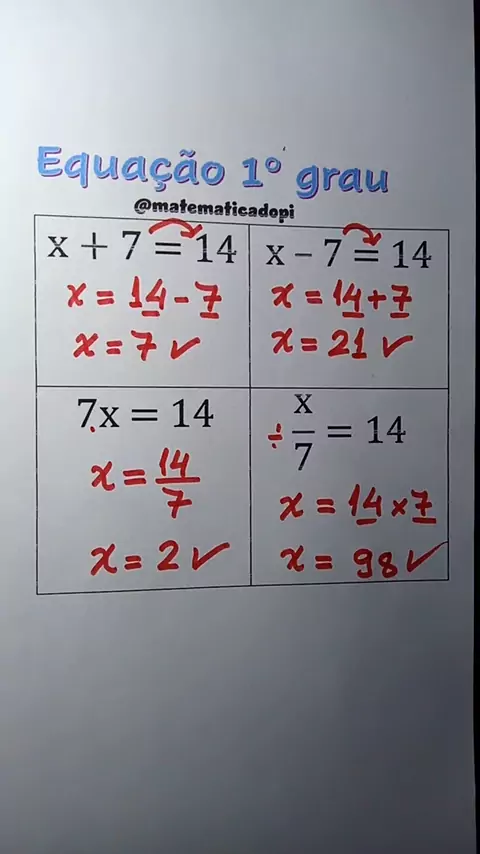 Equação 1º grau
@matematicadopi
x + 7 = 14
x = 14 - 7
x = 7 ✓
x – 7 = 14
x = 14 + 7
x = 21 ✓
7.x = 14
x = 14/7
x = 2 ✓
÷ x/7 = 14
x = 14 x 7
x = 98 ✓